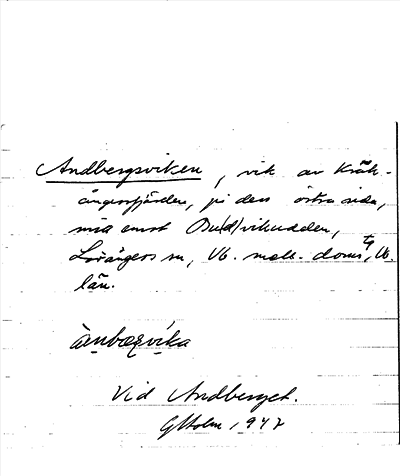 Andbergsviken, vik av Kråk-
ångersfjärden, på dess östra sida,
mitt emot Bu(d)viksudden,
Lövångers sn, Vb. mell. doms, Vb.
län.
Vid Andberget.
G Holm 1947